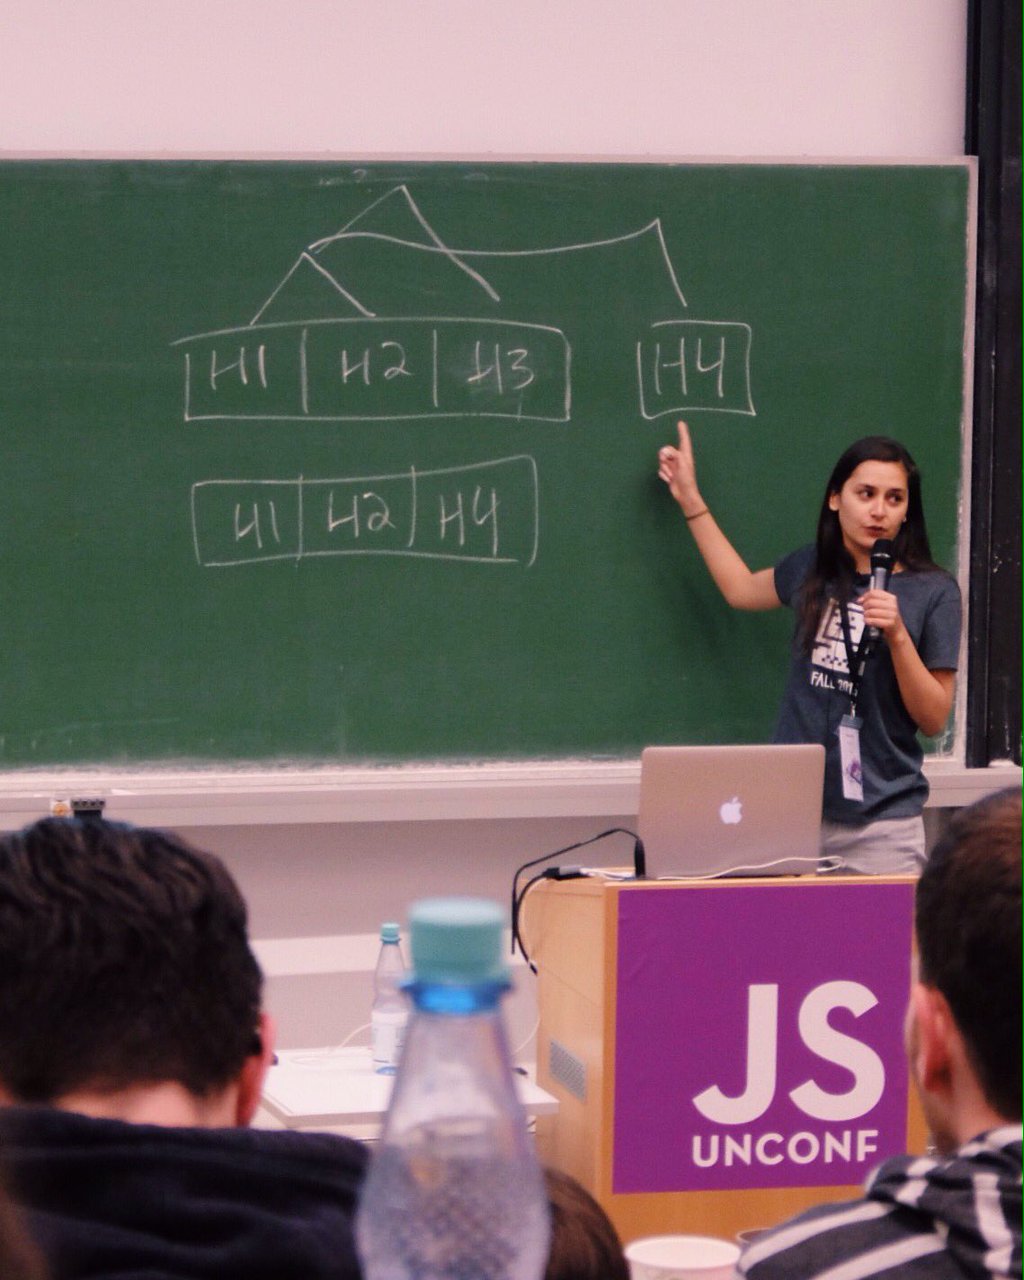 H1 H2 H3 H4
H1 H2 H4
FALL
JS
UNCONF